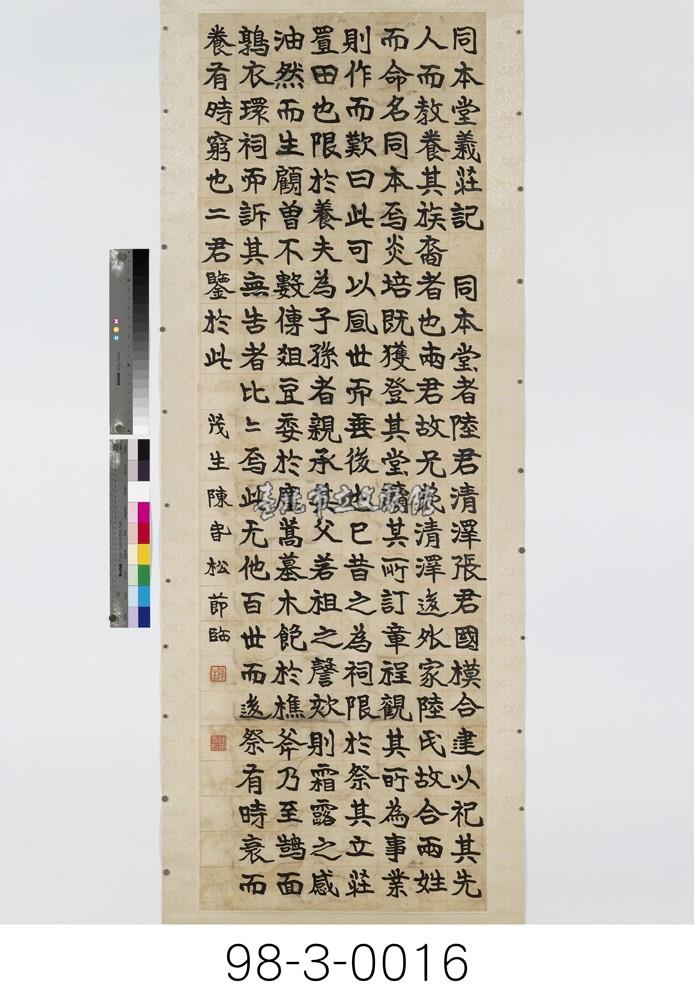 同本堂義莊記　同本堂者陸君清澤張君國模合建以祀其先
人而教養其族裔者也兩君故兄清澤後外家陸氏故合兩姓
而命名同本焉炎培既獲登其堂其所訂章程觀其所為事業
則作而歎曰此可以風世而垂後也已昔之為祠限於祭其立莊
置田也限於養夫為子孫者親承其父若祖之謦欬則霜露之感
油然而生顧曾不數傳俎豆委於蒿墓木飽於樵斧乃至鵠面
鶉衣環祠而訴其無告者比比焉此无他百世而後祭有時衰而
養有時窮也二君鑒於此　茂生陳松節臨
臺北市立文獻館
98-3-0016